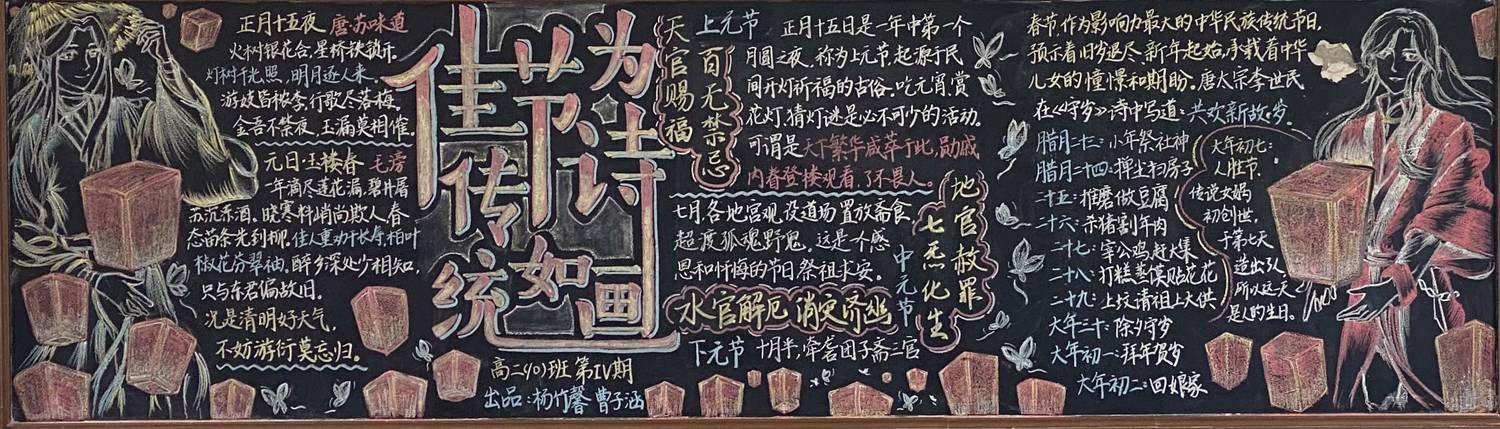 正月十五夜 唐·苏味道
火树银花合,星桥铁锁开。
灯树千光照,明月逐人来。
游妓皆秾李,行歌尽落梅。
金吾不禁夜,玉漏莫相催。
元日·玉楼春 毛滂
一年滴尽莲花漏,碧井屠
苏沉冻酒。晓寒料峭尚欺人,春
态苗条先到柳。佳人重劝千长寿,柏叶
椒花芬翠袖。醉乡深处少相知,
只与东君偏故旧。
况是清明好天气,
不妨游衍莫忘归。
佳节为诗
传统如画
高二(10)班 第IV期
出品:杨竹馨 曹子涵
天官赐福
百无禁忌
上元节 正月十五日是一年中第一个
月圆之夜,称为上元节,起源于民
间开灯祈福的古俗。吃元宵、赏
花灯、猜灯谜是必不可少的活动。
可谓是天下繁华咸萃于此,勋戚
内眷登楼观看,了不畏人。
七月,各地宫观设道场置放斋食
超度孤魂野鬼。这是个感
恩和忏悔的节日祭祖求安。
中元节
地官赦罪
七炁化生
水官解厄 消灾济幽
下元节 十月半,牵砻团子斋三官
春节,作为影响力最大的中华民族传统节日,
预示着旧岁退尽、新年起始,承载着中华
儿女的憧憬和期盼。唐太宗李世民
在《守岁》诗中写道:共欢新故岁。
腊月二十三:小年祭社神
腊月二十四:掸尘扫房子
二十五:推磨做豆腐
二十六:杀猪割年肉
二十七:宰公鸡赶大集
二十八:打糕蒸馍贴花花
二十九:上坟请祖上大供
大年三十:除夕守岁
大年初一:拜年贺岁
大年初二:回娘家
大年初七:
人胜节,
传说女娲
初创世,
于第七天
造出了人
所以这天
是人的生日。